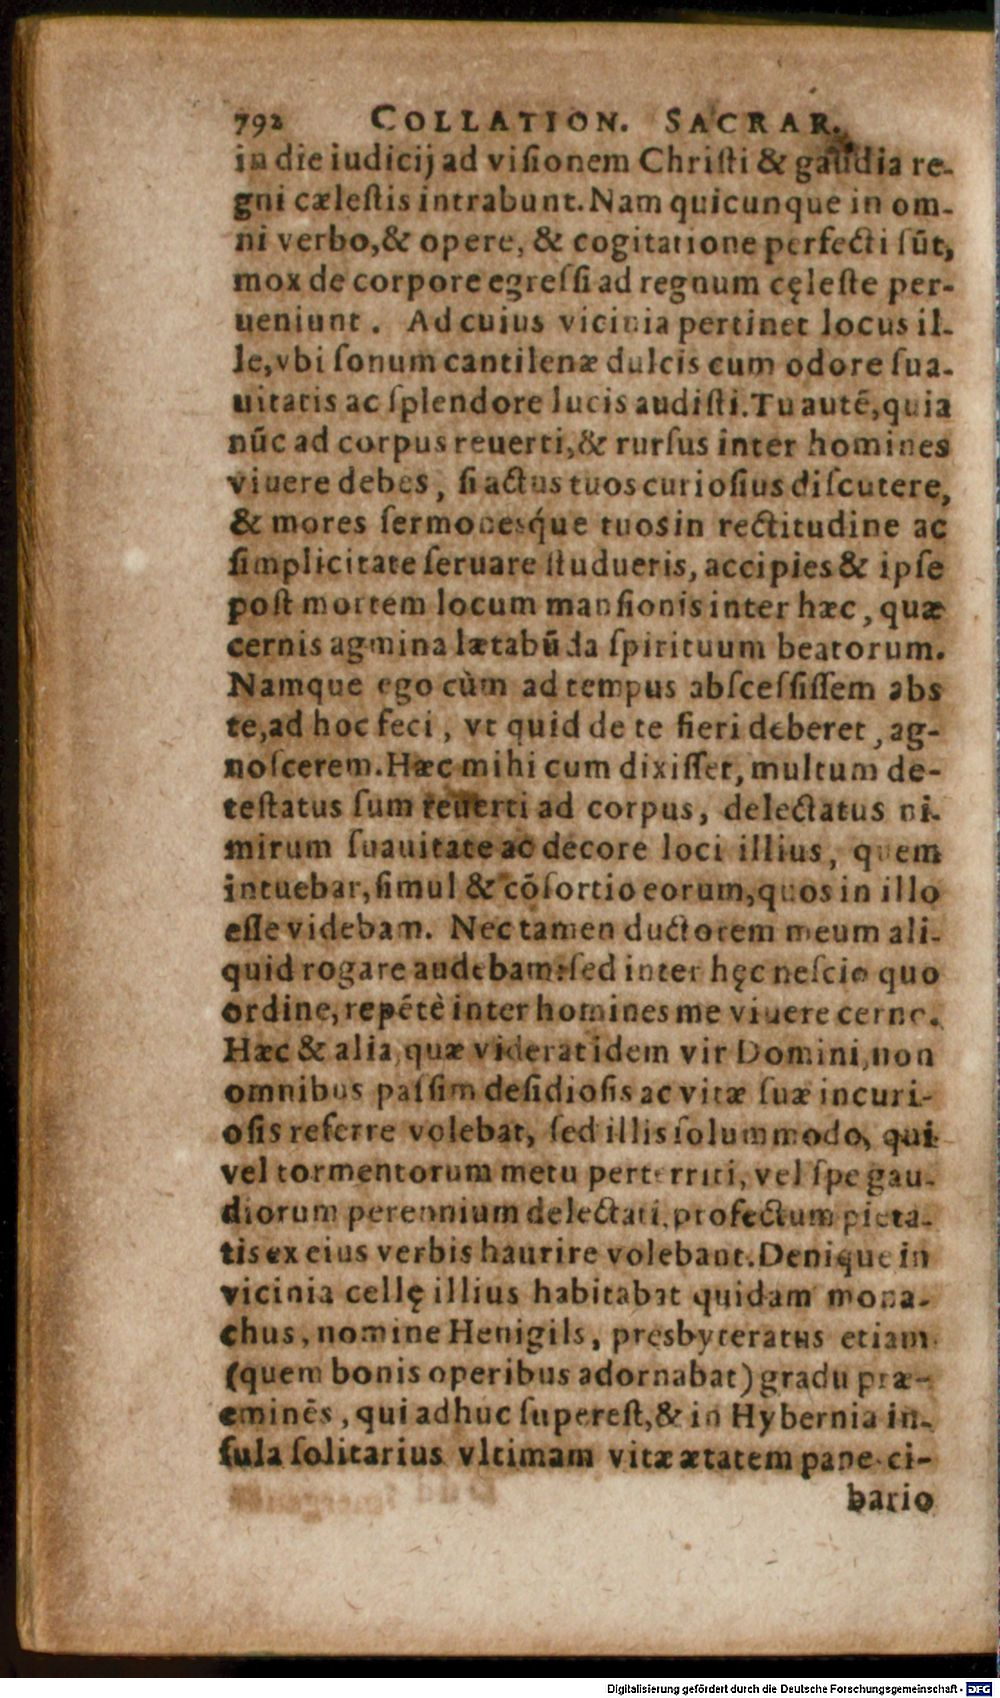 792 COLLATION. SACRAR.
in die iudicij ad visionem Christi & gaudia re-
gni cælestis intrabunt. Nam quicunque in om-
ni verbo, & opere, & cogitatione perfecti sũt,
mox de corpore egressi ad regnum cęleste per-
ueniunt. Ad cuius vicinia pertinet locus il-
le, vbi sonum cantilenæ dulcis cum odore sua-
uitatis ac splendore lucis audisti. Tu autẽ, quia
nũc ad corpus reuerti, & rursus inter homines
viuere debes, si actus tuos curiosius discutere,
& mores sermonesq́ue tuos in rectitudine ac
simplicitate seruare studueris, accipies & ipse
post mortem locum mansionis inter hæc, quæ
cernis agmina lætabũda spirituum beatorum.
Namque ego cùm ad tempus abscessissem abs
te, ad hoc feci, vt quid de te fieri deberet, ag-
noscerem. Hæc mihi cum dixisset, multum de-
testatus sum reuerti ad corpus, delectatus ni-
mirum suauitate ac decore loci illius, quem
intuebar, simul & cõsortio eorum, quos in illo
esse videbam. Nec tamen ductorem meum ali-
quid rogare audebam: sed inter hęc nescio quo
ordine, repẽtè inter homines me viuere cerno.
Hæc & alia, quæ viderat idem vir Domini, non
omnibus passim desidiosis ac vitæ suæ incuri-
osis referre volebat, sed illis solummodo, qui
vel tormentorum metu perterriti, vel spe gau-
diorum perennium delectati, profectum pieta-
tis ex eius verbis haurire volebant. Denique in
vicinia cellę illius habitabat quidam mona-
chus, nomine Henigils, presbyteratus etiam
(quem bonis operibus adornabat) gradu præ-
eminẽs, qui adhuc superest, & in Hybernia in-
sula solitarius vltimam vitæ ætatem pane ci-
bario
Digitalisierung gefördert durch die Deutsche Forschungsgemeinschaft - DFG